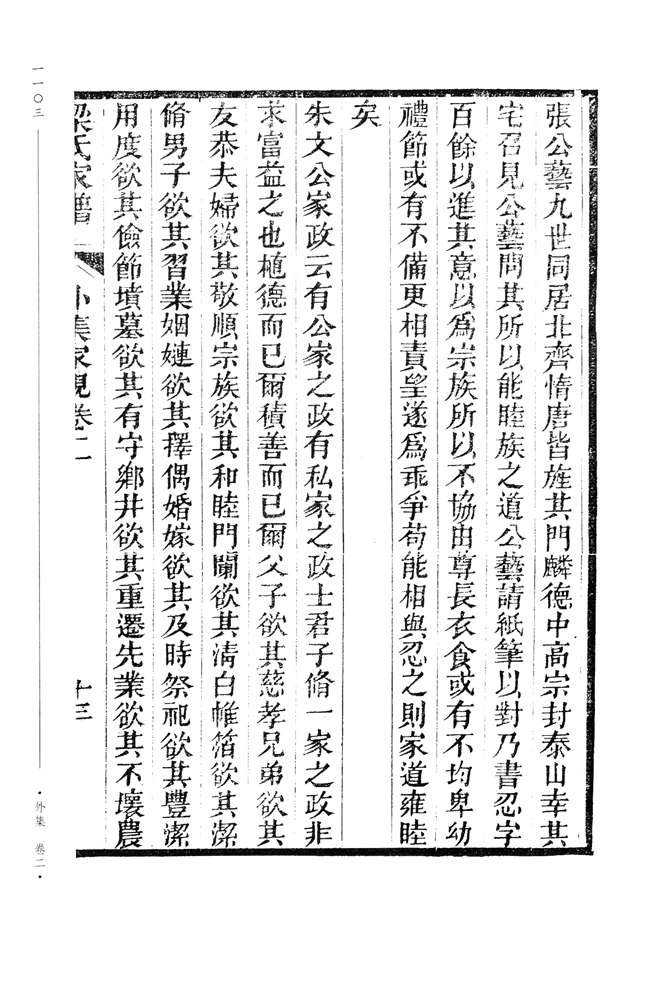 張公藝九世同居北齊惰唐皆旌其門麟德中高宗封泰山幸其
宅召見公藝問其所以能睦族之道公藝請紙筆以對乃書忍字
百餘以進其意以爲宗族所以不協由尊長衣食或有不均卑幼
禮節或有不備更相責望遂爲乖爭苟能相與忍之則家道雍睦
矣
朱文公家政云有公家之政有私家之政士君子脩一家之政非
求富益之也植德而已爾積善而已爾父子欲其慈孝兄弟欲其
友恭夫婦欲其敬順宗族欲其和睦門闌欲其清白帷箔欲其潔
脩男子欲其習業姻婕欲其擇偶婚嫁欲其及時祭祀欲其豐潔
用度欲其儉節墳墓欲其有守鄉井欲其重遷先業欲其不壞農
梁氏家譜 外集家規卷二 十三
一一〇三
·外集 卷二·